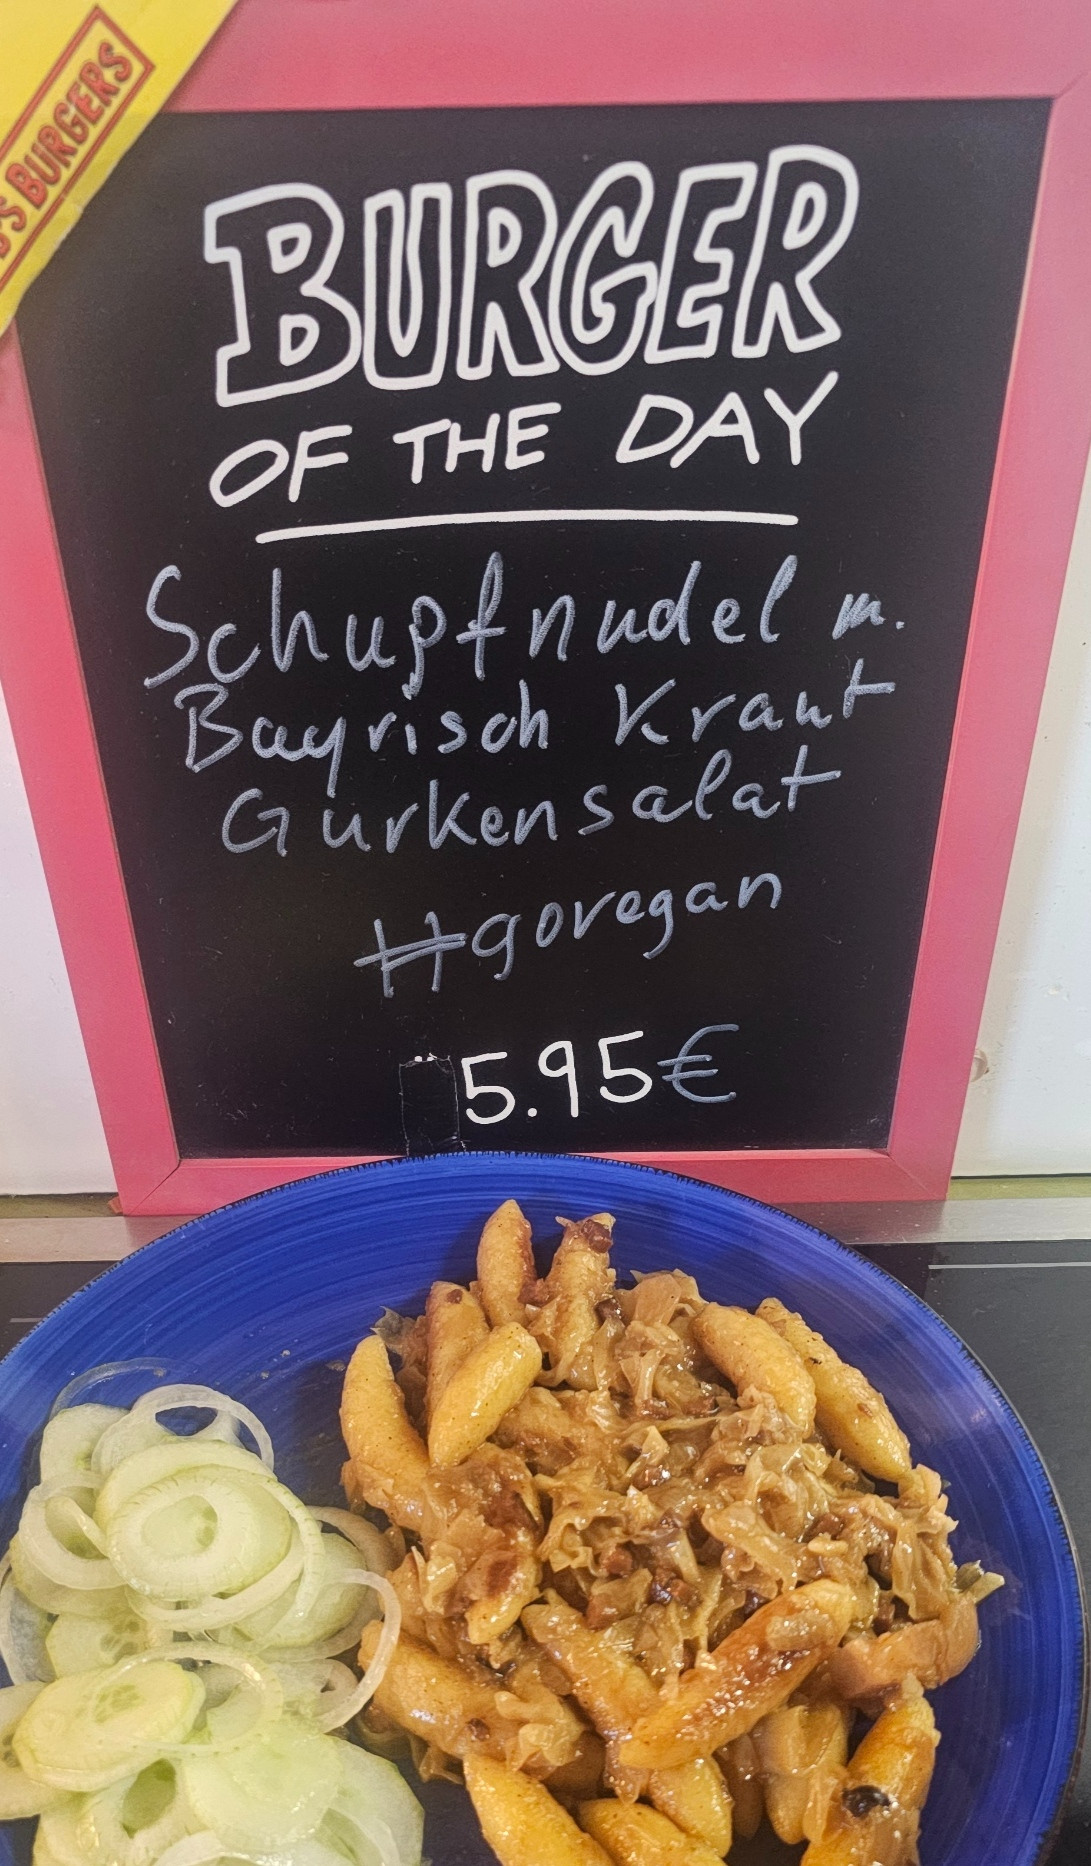 'S BURGERS
BURGER
OF THE DAY
Schupfnudel m.
Bayrisch Kraut
Gurkensalat
#govegan
5.95€